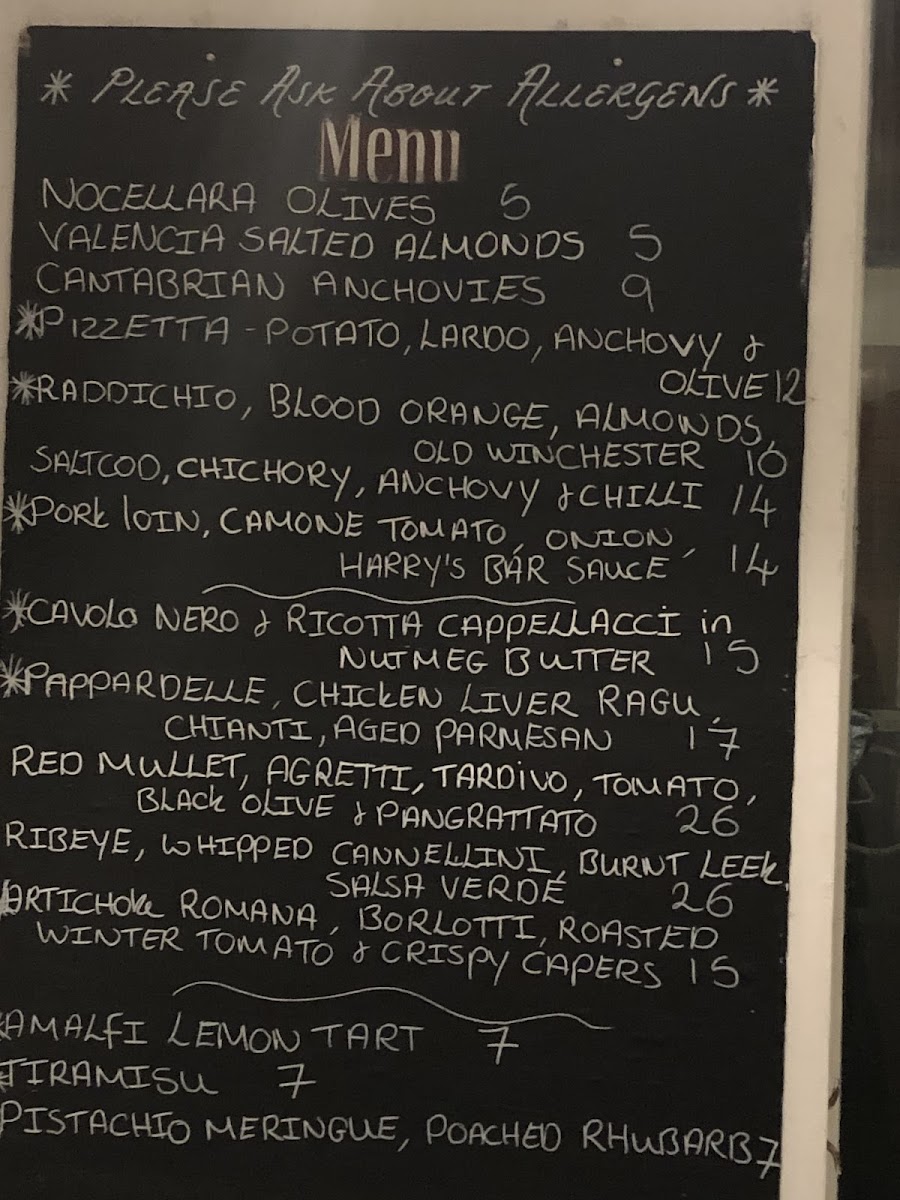 * PLEASE ASK ABOUT ALLERGENS *
Menu
NOCELLARA OLIVES 5
VALENCIA SALTED ALMONDS 5
CANTABRIAN ANCHOVIES 9
*PIZZETTA - POTATO, LARDO, ANCHOVY &
OLIVE 12
*RADDICHIO, BLOOD ORANGE, ALMONDS,
OLD WINCHESTER 10
SALTCOD, CHICHORY, ANCHOVY & CHILLI 14
*PORK LOIN, CAMONE TOMATO, ONION,
HARRY'S BAR SAUCE 14
*CAVOLO NERO & RICOTTA CAPPELLACCI in
NUTMEG BUTTER 15
*PAPPARDELLE, CHICKEN LIVER RAGU,
CHIANTI, AGED PARMESAN 17
RED MULLET, AGRETTI, TARDIVO, TOMATO,
BLACK OLIVE & PANGRATTATO 26
RIBEYE, WHIPPED CANNELLINI, BURNT LEEK,
SALSA VERDE 26
ARTICHOKE ROMANA, BORLOTTI, ROASTED
WINTER TOMATO & CRISPY CAPERS 15
*AMALFI LEMON TART 7
*TIRAMISU 7
PISTACHIO MERINGUE, POACHED RHUBARB 7